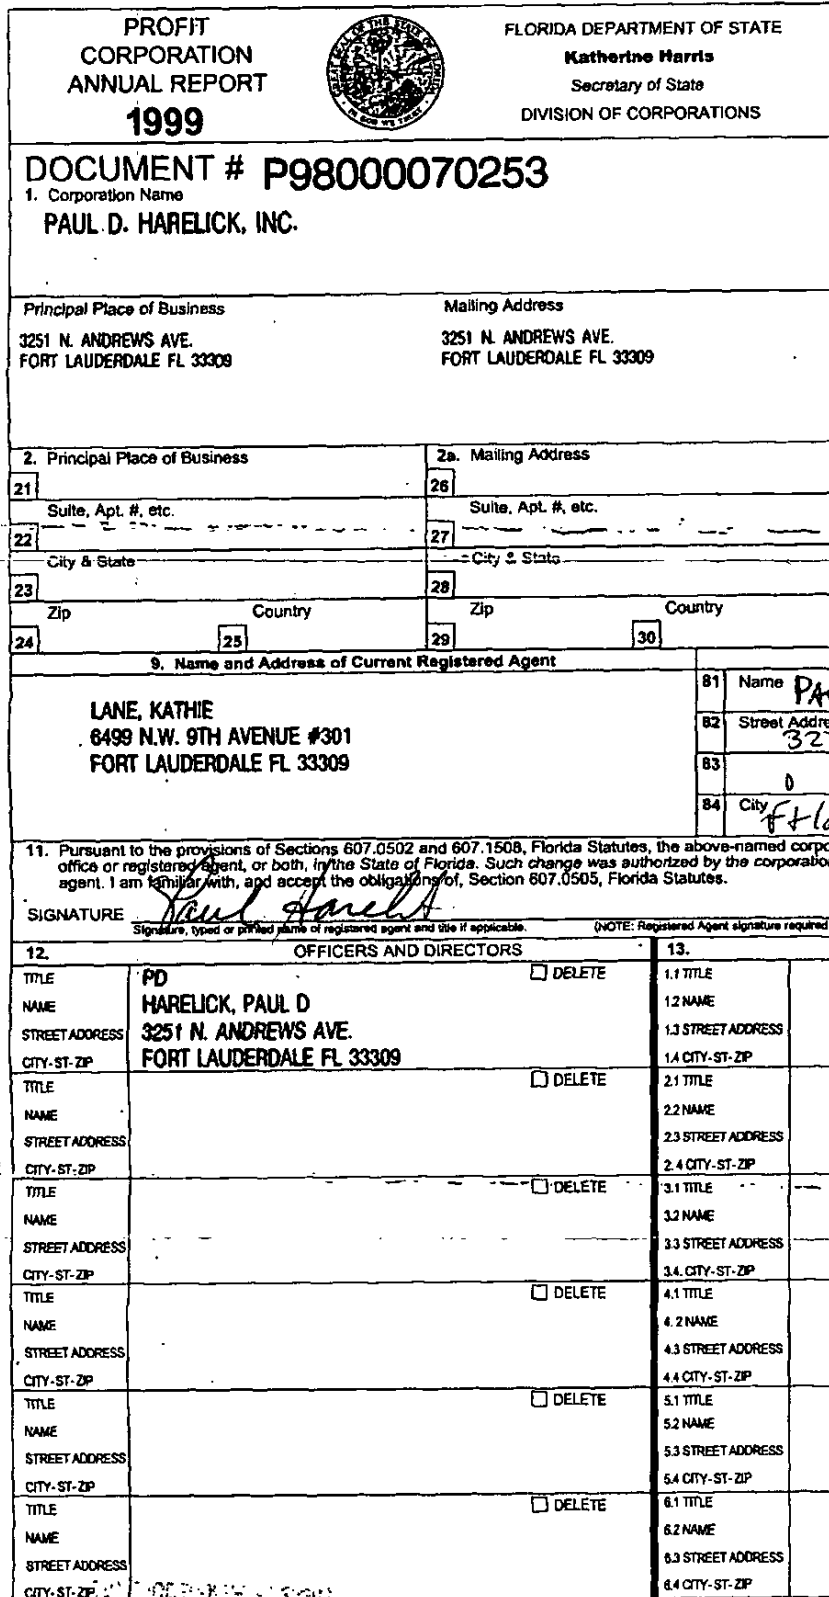 PROFIT
CORPORATION
ANNUAL REPORT
1999
GREAT SEAL OF THE STATE OF FLORIDA
IN GOD WE TRUST
FLORIDA DEPARTMENT OF STATE
Katherine Harris
Secretary of State
DIVISION OF CORPORATIONS
DOCUMENT # P98000070253
1. Corporation Name
PAUL D. HARELICK, INC.
Principal Place of Business
Mailing Address
3251 N. ANDREWS AVE.
FORT LAUDERDALE FL 33309
3251 N. ANDREWS AVE.
FORT LAUDERDALE FL 33309
2. Principal Place of Business
2a. Mailing Address
21
26
Suite, Apt. #, etc.
Suite, Apt. #, etc.
22
27
City & State
City & State
23
28
Zip
Country
Zip
Country
24
25
29
30
9. Name and Address of Current Registered Agent
LANE, KATHIE
6499 N.W. 9TH AVENUE #301
FORT LAUDERDALE FL 33309
81 Name PA
82 Street Addre
32
83
84 City Ft La
11. Pursuant to the provisions of Sections 607.0502 and 607.1508, Florida Statutes, the above-named corpo
office or registered agent, or both, in the State of Florida. Such change was authorized by the corporation
agent. I am familiar with, and accept the obligations of, Section 607.0505, Florida Statutes.
SIGNATURE Paul
Signature, typed or printed name of registered agent and title if applicable.
(NOTE: Registered Agent signature required
12. OFFICERS AND DIRECTORS
13.
TITLE PD DELETE
NAME HARELICK, PAUL D
STREET ADDRESS 3251 N. ANDREWS AVE.
CITY-ST-ZIP FORT LAUDERDALE FL 33309
1.1 TITLE
1.2 NAME
1.3 STREET ADDRESS
1.4 CITY-ST-ZIP
TITLE DELETE
NAME
STREET ADDRESS
CITY-ST-ZIP
2.1 TITLE
2.2 NAME
2.3 STREET ADDRESS
2.4 CITY-ST-ZIP
TITLE DELETE
NAME
STREET ADDRESS
CITY-ST-ZIP
3.1 TITLE
3.2 NAME
3.3 STREET ADDRESS
3.4. CITY-ST-ZIP
TITLE DELETE
NAME
STREET ADDRESS
CITY-ST-ZIP
4.1 TITLE
4.2 NAME
4.3 STREET ADDRESS
4.4 CITY-ST-ZIP
TITLE DELETE
NAME
STREET ADDRESS
CITY-ST-ZIP
5.1 TITLE
5.2 NAME
5.3 STREET ADDRESS
5.4 CITY-ST-ZIP
TITLE DELETE
NAME
STREET ADDRESS
CITY-ST-ZIP
6.1 TITLE
6.2 NAME
6.3 STREET ADDRESS
6.4 CITY-ST-ZIP